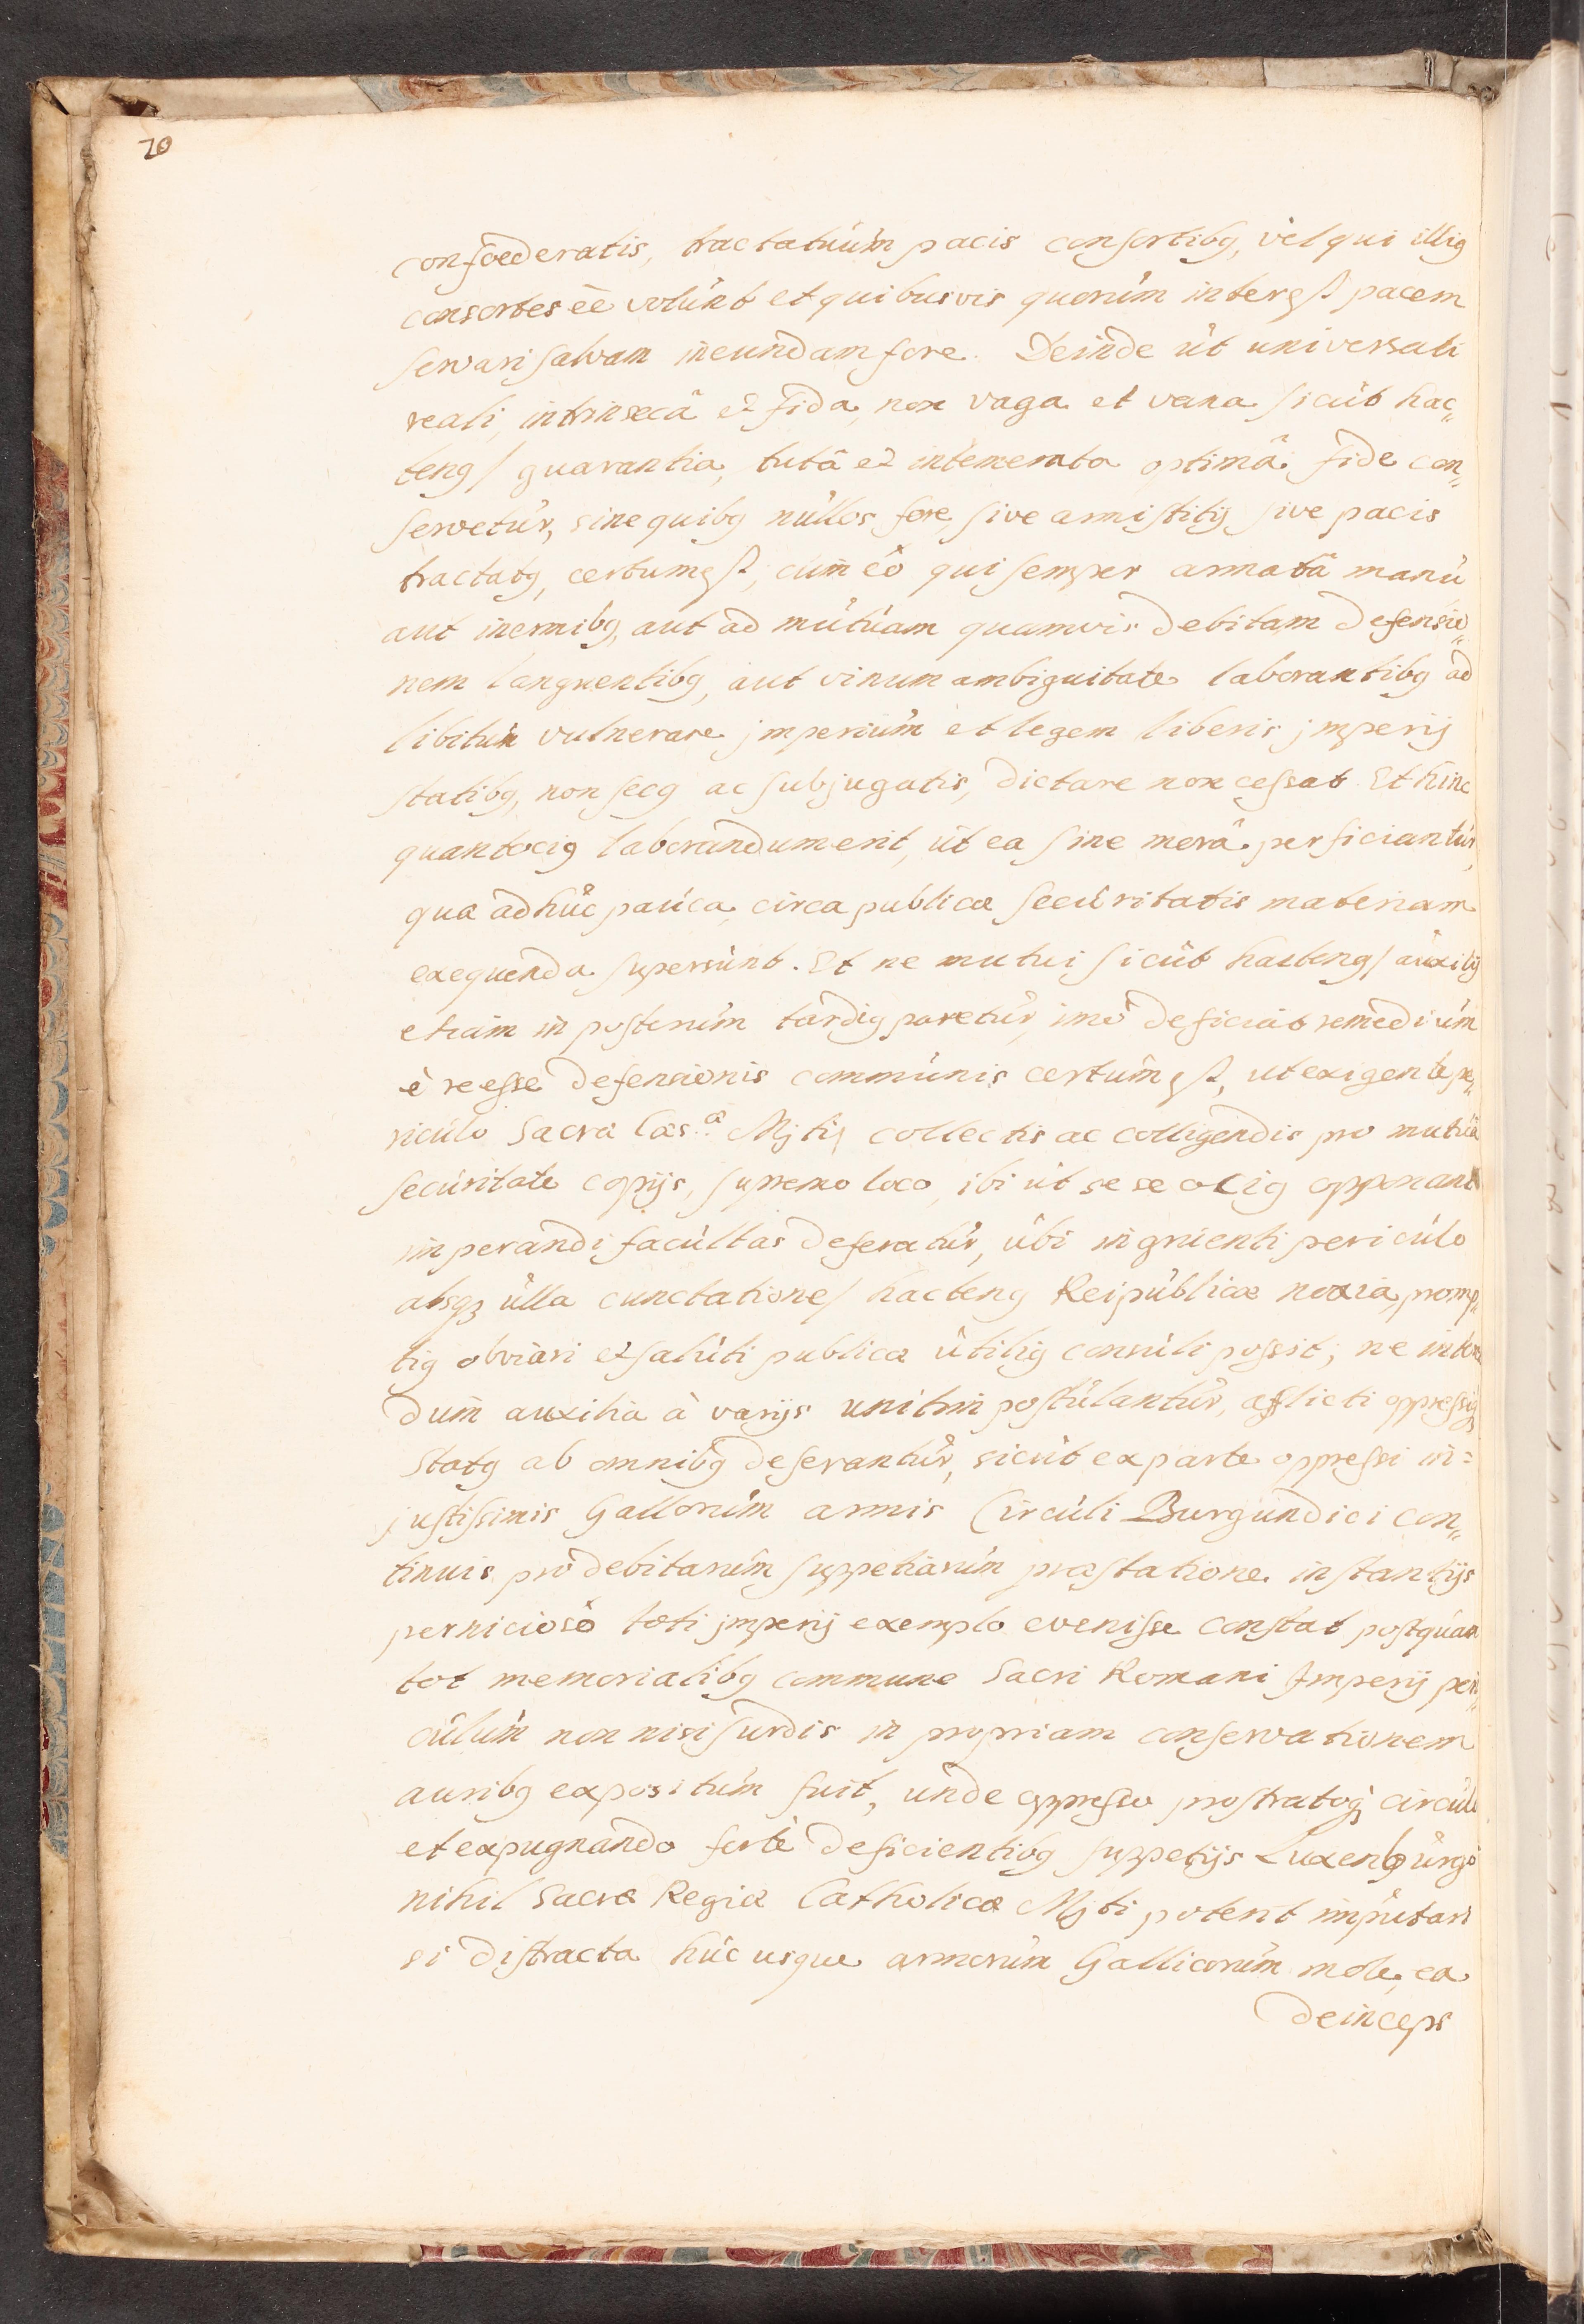 20
confoederatis, tractatuúm pacis consortibg, vel qui illig
consortes eē volúnt et quibusvis quorúm interest pacem
servari salvam ineundam fore. Deinde út universali
reali, intrinsecâ et fida, non vaga et vana / sicút hac„
teng / guarantia, tutâ et intemerata optimâ fide con„
servetúr, sine quibg núllos fore, sive armistitij sive pacis
tractatg, certum est, cúm eô qui semper armatâ manú
aut inermibg, aut ad mútúam quamvis debitam defensio„
nem languentibg, aut virium ambiguitate laborantibg ad
libitúm vulnerare jmperiúm et legem liberis jmperij
statibg, non secg ac subjugatis, dictare non cessat. Et hinc
quantocig laborandum erit, út ea sine morâ perficiantúr,
qua adhúc paúca circa publicæ secúritatis materiam
exequenda supersúnt. Et ne mutui / sicút hacteng / aúxilij
etiam in posterúm tardig paretúr, imô deficiat remediúm
è re esse defensionis commúnis certúm est, ut exigente pe„
riculo Sacræ Cæs.æ Mjtis collectis ac colligendis pro mutúa
secúritate copijs, supremo loco, ibi út sese ocig opponant
imperandi facúltas deferatúr, úbi ingruenti periculo
absq3 úlla cunctatione / hacteng Reipúblicæ noxia, promp„
tig obviari et salúti publicæ útilig consúli possit; ne inter
dum auxilia à varijs unitim postúlantúr, afflicti oppressiq3
statg ab omnibg deserantúr, sicút ex parte oppressi in=
justissimis Gallorúm armis Circúli Burgundici con„
tinuis pro debitarúm suppetiarúm præstatione instantijs
perniciosô toti jmperij exemplo evenisse constat postquàm
tot memorialibg commune Sacri Romani Imperij peri„
cúlúm non nisi surdis in propriam conservationem
auribg expositúm fuit, únde oppresso prostratoq3 circúlo
et expugnando fertè deficientibg suppetijs Luxenbúrgô
nihil Sacræ Regiæ Catholicæ Mjti poterit impútari
si distracta húcusque armorúm Gallicorúm mole, ea
deinceps